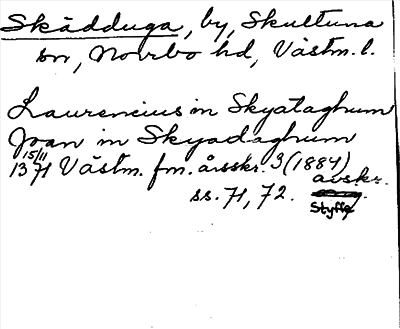 Skädduga, by, Skultuna
sn, Norrbo hd, Västm. l.
Laurencius in Skyataghum
Joan in Skyadaghum
15/11 1371 Västm. fm. årsskr. 3 (1884)
avskr.
ss. 71, 72.
Styffe